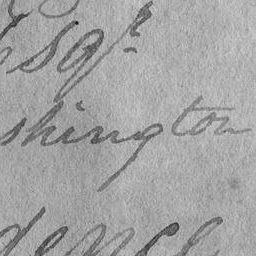 Esqr
shington
dence